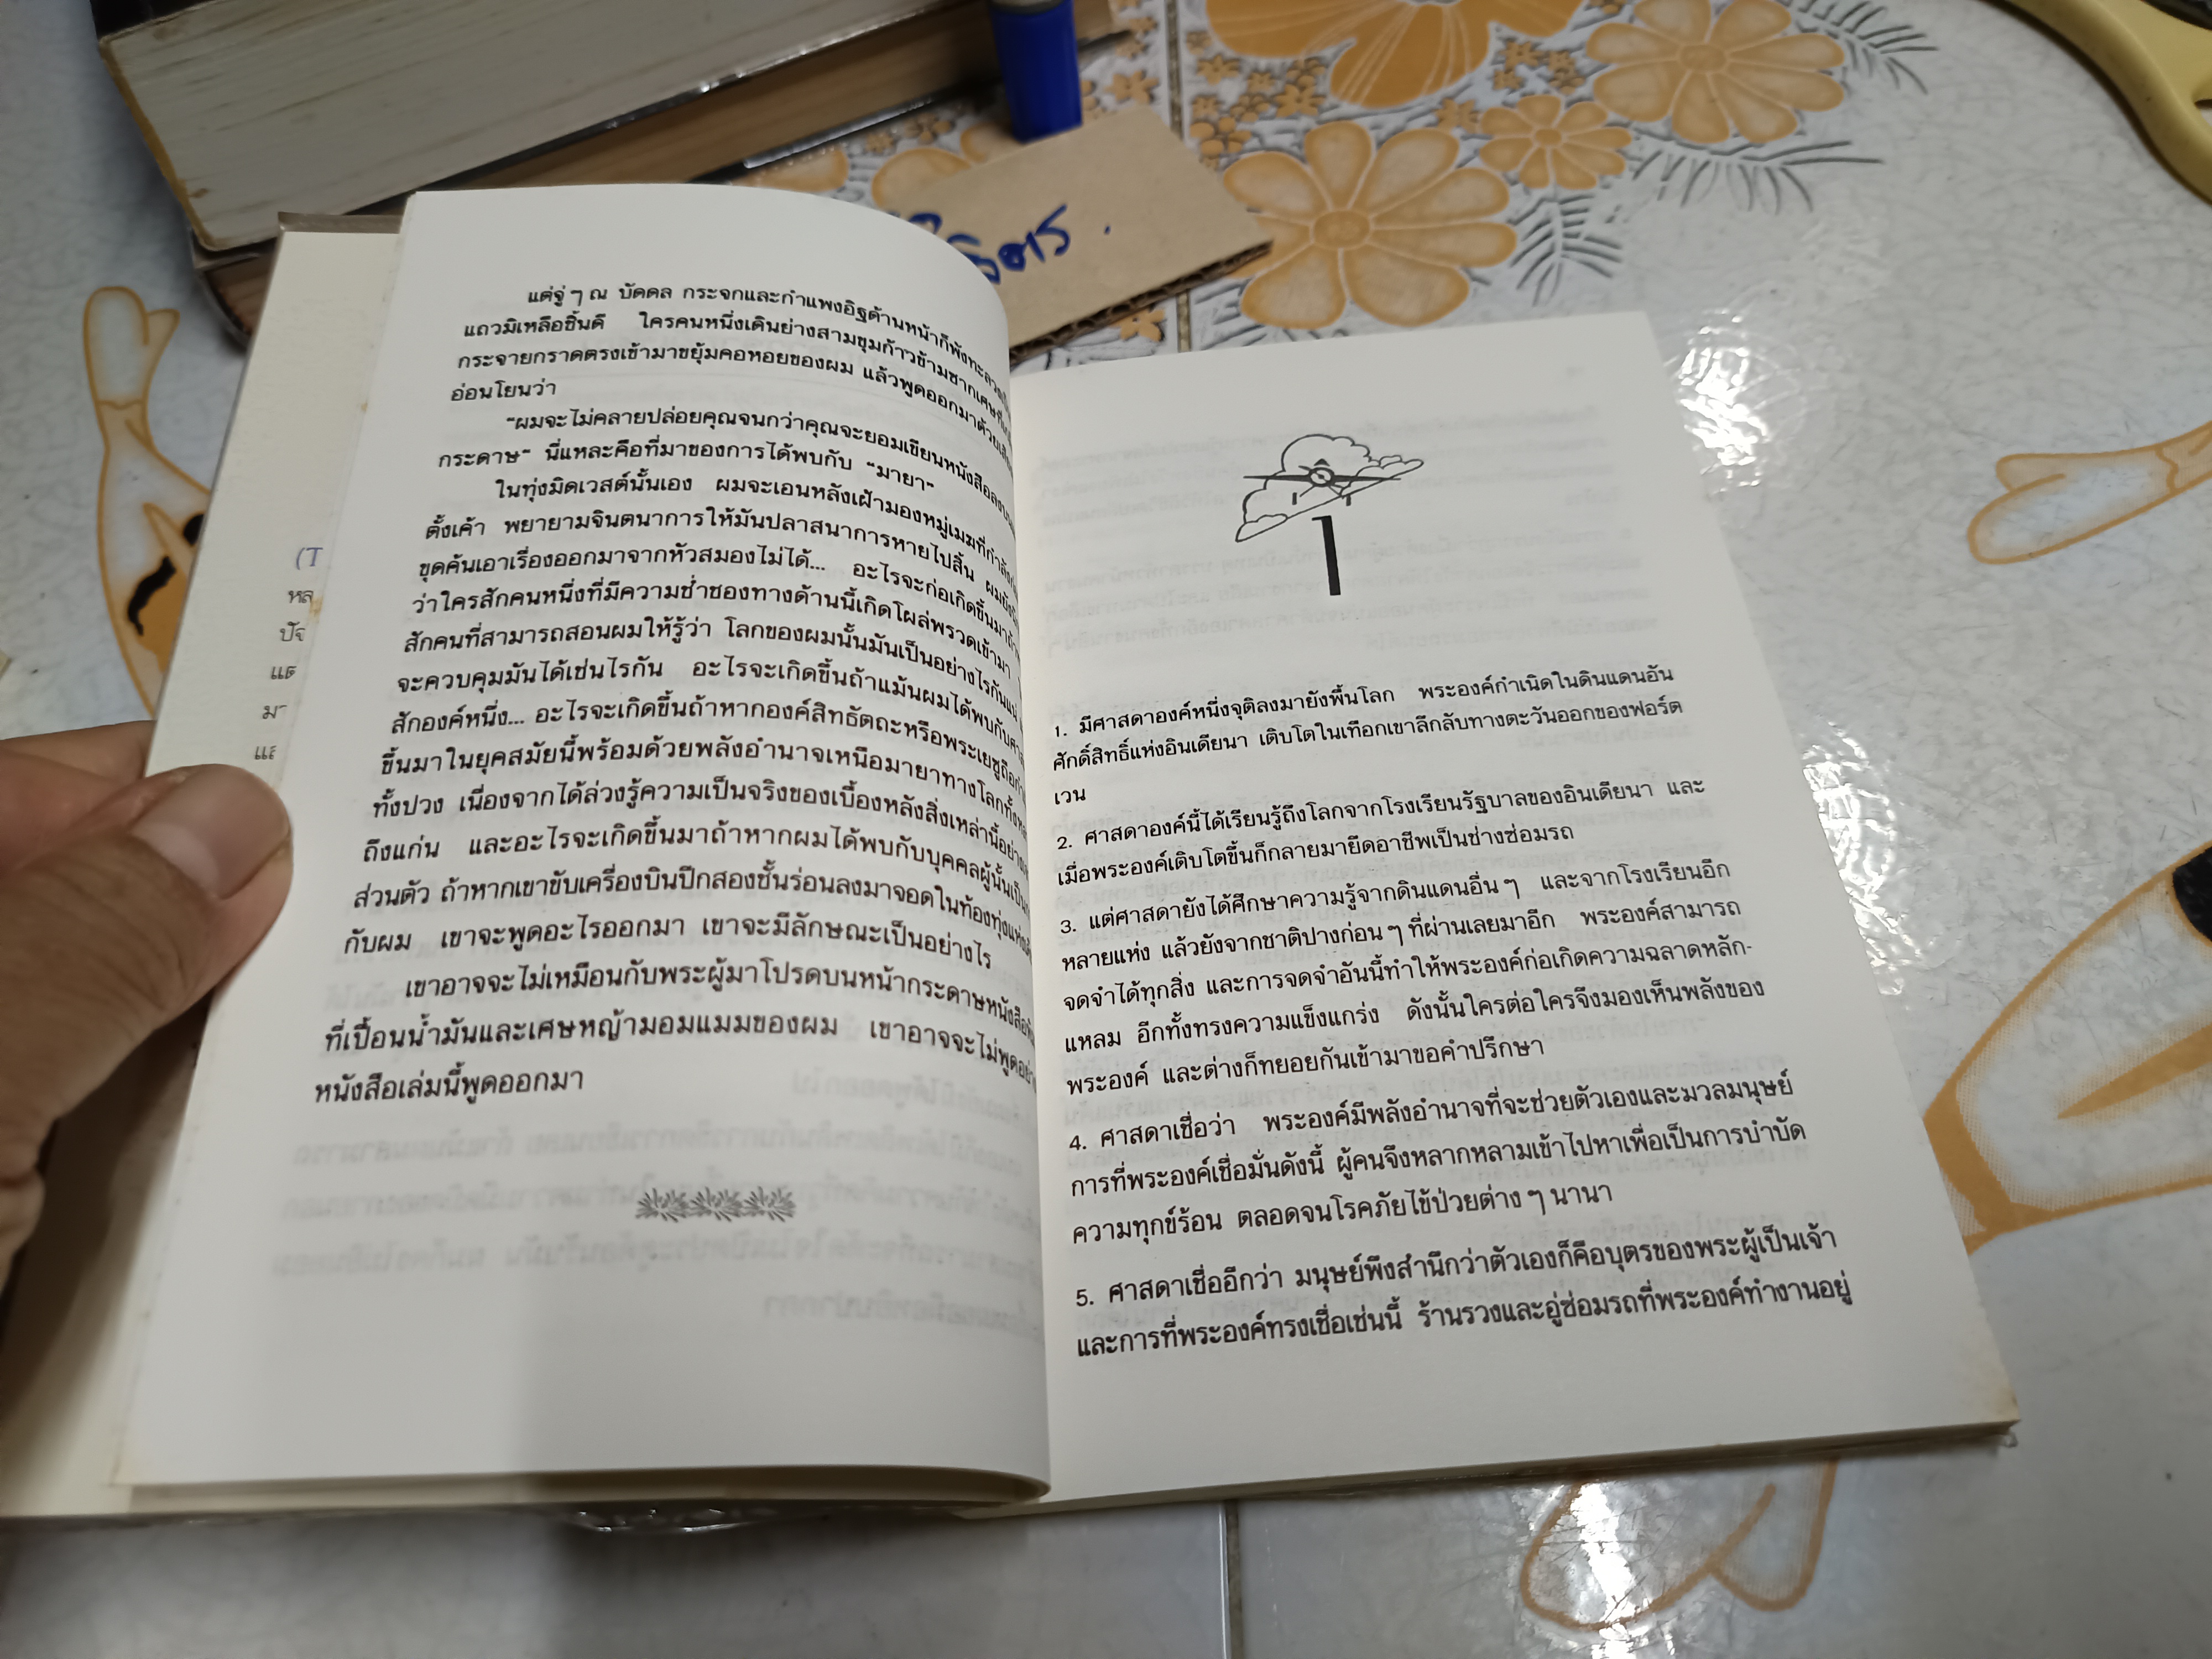 วิตร.
(T
หล
ปัจ
แต่จู่ ๆ ณ บัดดล กระจกและกำแพงอิฐด้านหน้าก็พังทะลวง
แถวมิเหลือชิ้นดี ใครคนหนึ่งเดินย่างสามขุมก้าวข้ามซากเศษ
กระจายกราดตรงเข้ามาขยุ้มคอหอยของผม แล้วพูดออกมาด้วย
อ่อนโยนว่า
"ผมจะไม่คลายปล่อยคุณจนกว่าคุณจะยอมเขียนหนังสือลงบน
กระดาษ" นี่แหละคือที่มาของการได้พบกับ "มายา"
ในทุ่งมิดเวสต์นั้นเอง ผมจะเอนหลังเฝ้ามองหมู่เมฆที่กำลัง
ตั้งเค้า พยายามจินตนาการให้มันปลาสนาการหายไปสิ้น ผมยัง
ขุดค้นเอาเรื่องออกมาจากหัวสมองไม่ได้... อะไรจะก่อเกิดขึ้นมาถ้า
ว่าใครสักคนหนึ่งที่มีความช่ำชองทางด้านนี้เกิดโผล่พรวดเข้ามา
สักคนที่สามารถสอนผมให้รู้ว่า โลกของผมนั้นมันเป็นอย่างไรกันแน่
จะควบคุมมันได้เช่นไรกัน อะไรจะเกิดขึ้นถ้าแม้นผมได้พบกับ
สักองค์หนึ่ง... อะไรจะเกิดขึ้นถ้าหากองค์สิทธัตถะหรือพระเยซูถือ
ขึ้นมาในยุคสมัยนี้พร้อมด้วยพลังอำนาจเหนือมายาทางโลกทั้ง
ทั้งปวง เนื่องจากได้ล่วงรู้ความเป็นจริงของเบื้องหลังสิ่งเหล่านี้
ถึงแก่น และอะไรจะเกิดขึ้นมาถ้าหากผมได้พบกับบุคคลผู้นั้นเป็น
ส่วนตัว ถ้าหากเขาขับเครื่องบินปีกสองชั้นร่อนลงมาจอดในท้องทุ่ง
กับผม เขาจะพูดอะไรออกมา เขาจะมีลักษณะเป็นอย่างไร
เขาอาจจะไม่เหมือนกับพระผู้มาโปรดบนหน้ากระดาษหนังสือ
ที่เปื้อนน้ำมันและเศษหญ้ามอมแมมของผม เขาอาจจะไม่พูด
หนังสือเล่มนี้พูดออกมา
1
1. มีศาสดาองค์หนึ่งจุติลงมายังพื้นโลก พระองค์กำเนิดในดินแดนอัน
ศักดิ์สิทธิ์แห่งอินเดียนา เติบโตในเทือกเขาลึกลับทางตะวันออกของฟอร์ต
เวน
2. ศาสดาองค์นี้ได้เรียนรู้ถึงโลกจากโรงเรียนรัฐบาลของอินเดียนา และ
เมื่อพระองค์เติบโตขึ้นก็กลายมายึดอาชีพเป็นช่างซ่อมรถ
3. แต่ศาสดายังได้ศึกษาความรู้จากดินแดนอื่น ๆ และจากโรงเรียนอีก
หลายแห่ง แล้วยังจากชาติปางก่อน ๆ ที่ผ่านเลยมาอีก พระองค์สามารถ
จดจำได้ทุกสิ่ง และการจดจำอันนี้ทำให้พระองค์ก่อเกิดความฉลาดหลัก-
แหลม อีกทั้งทรงความแข็งแกร่ง ดังนั้นใครต่อใครจึงมองเห็นพลังของ
พระองค์ และต่างก็ทยอยกันเข้ามาขอคำปรึกษา
4. ศาสดาเชื่อว่า พระองค์มีพลังอำนาจที่จะช่วยตัวเองและมวลมนุษย์
การที่พระองค์เชื่อมั่นดังนี้ ผู้คนจึงหลากหลามเข้าไปหาเพื่อเป็นการบำบัด
ความทุกข์ร้อน ตลอดจนโรคภัยไข้ป่วยต่าง ๆ นานา
5. ศาสดาเชื่ออีกว่า มนุษย์พึงสำนึกว่าตัวเองก็คือบุตรของพระผู้เป็นเจ้า
และการที่พระองค์ทรงเชื่อเช่นนี้ ร้านรวงและอู่ซ่อมรถที่พระองค์ทำงานอยู่